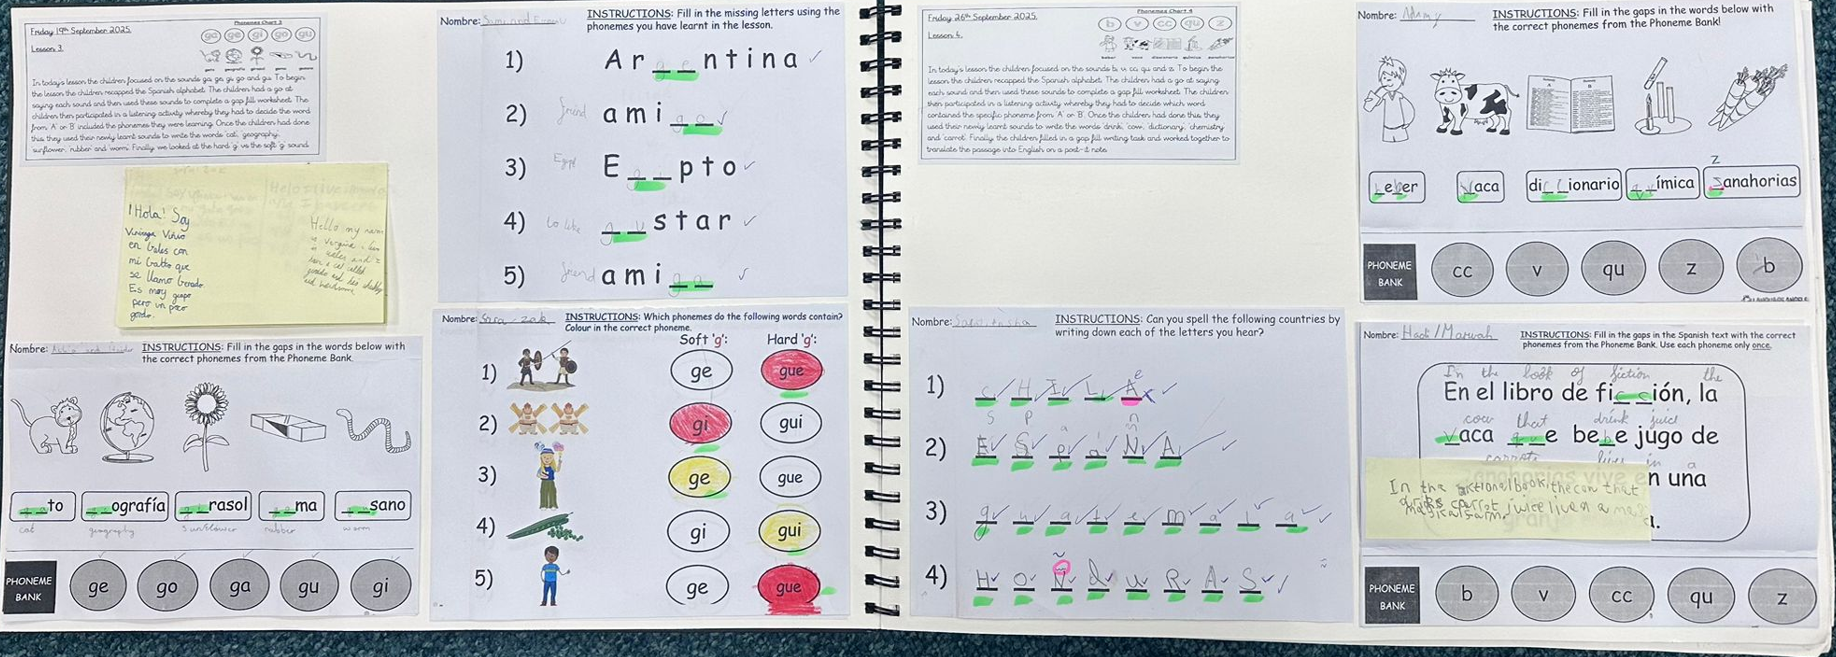 Friday 19th September 2025.
Lesson 3.
Phonemes Chart 3
ga ge gi go gu
In today's lesson the children focused on the sounds ga, ge, gi, go and gu. To begin
the lesson the children recapped the Spanish alphabet. The children had a go at
saying each sound and then used these sounds to complete a gap fill worksheet. The
children then participated in a listening activity whereby they had to decide the word
from 'A' or 'B' included the phonemes they were learning. Once the children had done
this they used their newly learnt sounds to write the words 'cat', 'geography',
'sunflower', 'rubber' and 'worm'. Finally we looked at the hard 'g' vs the soft 'g' sound
¡Hola! Soy
en Gales con
mi Gatto que
se llamo
Es muy guapo
pero un poco
gordo.
Hello my name
Nombre:
INSTRUCTIONS: Fill in the gaps in the words below with
the correct phonemes from the Phoneme Bank.
to
ografía
rasol
ma
sano
cat
geography
sunflower
rubber
worm
PHONEME
BANK
ge go ga gu gi
Nombre:
INSTRUCTIONS: Fill in the missing letters using the
phonemes you have learnt in the lesson.
1) Ar ge ntina
2) friend ami go
3) E g_pto
4) to like gu star
5) friend ami ga
Nombre: Sara - zak
INSTRUCTIONS: Which phonemes do the following words contain?
Colour in the correct phoneme.
Soft 'g': Hard 'g':
1) ge gue
2) gi gui
3) ge gue
4) gi gui
5) ge gue
Friday 26th September 2025.
Lesson 4.
Phonemes Chart 4
b v cc qu z
In today's lesson the children focused on the sounds b, v, cc, qu and z. To begin the
lesson the children recapped the Spanish alphabet. The children had a go at saying
each sound and then used these sounds to complete a gap fill worksheet. The children
then participated in a listening activity whereby they had to decide which word
contained the specific phoneme from 'A' or 'B'. Once the children had done this they
used their newly learnt sounds to write the words 'drink', 'cow', 'dictionary', 'chemistry'
and 'carrot'. Finally the children filled in a gap fill writing task and worked together to
translate the passage into English on a post-it note.
Nombre:
INSTRUCTIONS: Can you spell the following countries by
writing down each of the letters you hear?
1) C H I L A
e
S p a ñ
2) E S p a Ñ A
3) g u a t e m a l a
4) H O N d u R A S
Nombre:
INSTRUCTIONS: Fill in the gaps in the words below
with the correct phonemes from the Phoneme Bank!
beber
vaca
diccionario
química
z
anahorias
PHONEME
BANK
cc v qu z b
Nombre: /Marwah
INSTRUCTIONS: Fill in the gaps in the Spanish text with the correct
phonemes from the Phoneme Bank. Use each phoneme only once.
In the book of fiction the
En el libro de ficción, la
cow that drink juice
vaca que bebe jugo de
carrots lives in a
anahorias vive en una
In the fictional book, the cow that
drinks carrot juice lives in a
magical farm.
PHONEME
BANK
b v cc qu z